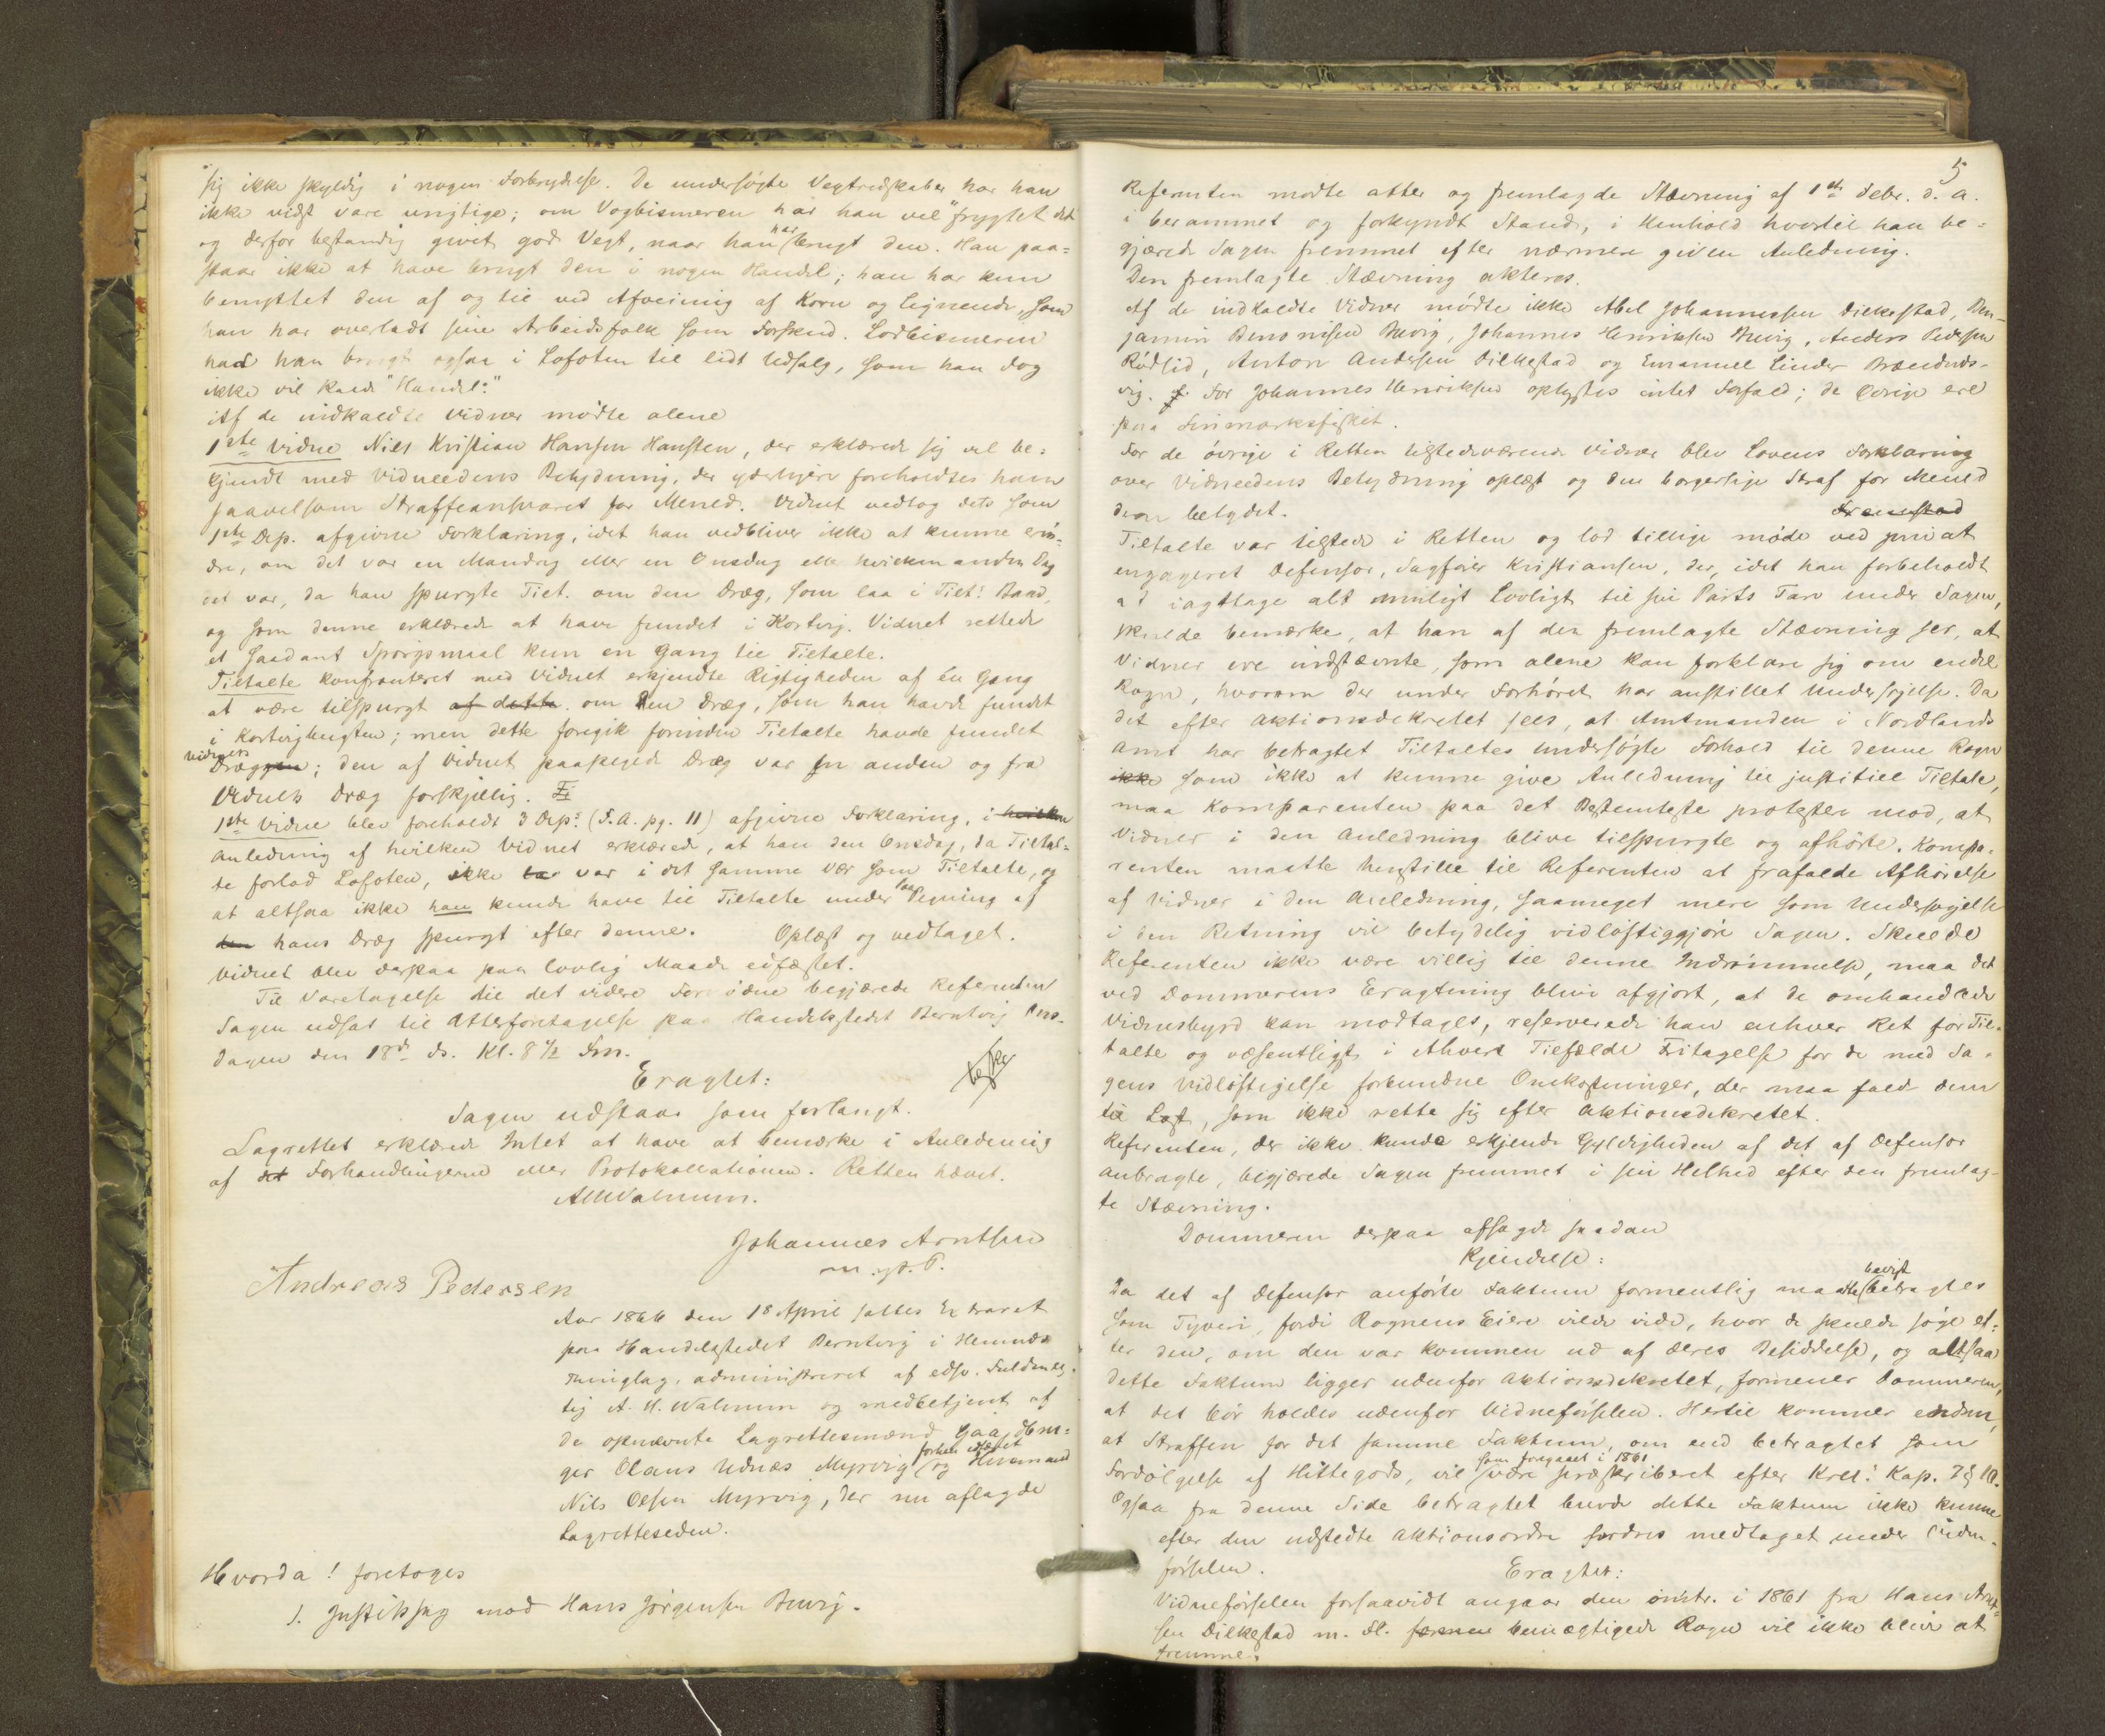 sig ikke skyldig i nogen Forbrydelse. De undersøgte Vegtredskaber har han
ikke vidst vare urigtige; om Vogbismeren har han vel "frygtet det
og derfor bestandig givet god Vegt, naar han har brugt den. Han paa-
staar ikke at have brugt den i nogen Handel; han har kun
benyttet den af og til ved Afveining af Korn og lignende, som
han har overladt sine Arbeidsfolk som Forskud. Lodbismeren
had han brugt ogsaa i Lofoten til lidt Udsalg, som han dog
ikke vil kalde "Handel."
Af de indkaldte Vidner mødte alene
1ste Vidne Nils Kristian Hansen Hansten, der erklærede sig vel be-
kjendt med Vidneedens Betydning, der yderligere foreholdtes ham
saavelsom Straffeansvaret for Mened. Vidnet vedtog dets som
1ste Dep. afgivne Forklaring, idet han vedbliver ikke at kunne erin-
dre, om det var en Mandag eller en Onsdag eller hvilken anden Dag
det var, da han spurgte Tilt. om den Dræg, som laa i Tilts Baad,
og som denne erklærede at have fundet i Kortvig. Vidnet rettede
et saadant Spørgsmaal kun en Gang til Tiltalte.
Tiltalte konfronteret med Vidnet erkjendte Rigtigheden af én Gang
at være tilspurgt af dette om den Dræg, som han havde fundet
i Kortvigbugten; men dette foregik forinden Tiltalte havde fundet
Vidnets
Dræggen; den af Vidnet paapegede Dræg var en anden og fra
Vidnets Dræg forskjellig.
1ste Vidne blev foreholdt 3 Deps (F.A. pg. 11) afgivne Forklaring, i hvilken
Anledning af hvilken Vidnet erklærede, at han den Onsdag, da Tiltal-
te forlod Lofoten, ikke var i det samme Vær som Tiltalte, og
at altsaa ikke han kunde have til Tiltalte under Pegning af
hans Dræg spurgt efter denne. Oplæst og vedtaget.
Vidnet blev derpaa paa lovlig Maade edfæstet.
Til Varetagelse til det videre Fornødne begjærede Referenten
Sagen udsat til Atterforetagelse paa Handelstedet Berntvig Ons-
dagen den 18de ds. Kl. 8 1/2 Fm.
Eragtet:
Sagen udstaar som forlangt.
Lagrettet erklærede Intet at have at bemærke i Anledning
af det Forhandlingerne eller Protokollationen. Retten hævet.
AMWalnum.
Johannes Arntsen
m. p. P.
Andreas Pedersen
Aar 1866 den 18 April sattes Extraret
paa Handelstedet Berntvig i Hemnæs
Thinglag, administreret af edsv. Fuldmæg-
tig A. M. Walnum og medbetjent af
de opnævnte Lagrettesmænd Gaa. Hen-
ger Olaus Udnæs Myrvig forhen edfæstet og Huusmand
Nils Olsen Myrvig, der nu aflagde
Lagretteseden.
Hvorda! foretoges
1. Justitssag mod Hans Jørgensen Buvig.
5
Referenten mødte atter og fremlagde Stævning af 1ste Febr. d. A.
i berammet og forkyndt Stand, i Henhold hvortil han be-
gjærede Sagen fremmet efter nærmere given Anledning.
Den fremlagte Stævning akteres.
Af de indkaldte Vidner mødte ikke Abel Johannessen Dilkestad, Ben-
jamin Benonisen Buvig, Johannes Henriksen Buvig, Anders Pedersen
Rødlid, Anton Andersen Dilkestad og Emanuel Linder Brændnds-
vig. For Johannes Henriksen oplystes intet Forfald; de øvrige ere
paa Finmarksfisket.
For de øvrige i Retten tilstedeværende Vidner blev Lovens Forklaring
over Vidneedens Betydning oplæst og den borgerlige Straf for Mened
dem betydet. Fremstod
Tiltalte var tilstede i Retten og lod tillige møde ved privat
engageret Defensor, Sagfører Kristiansen, der, idet han forbeholdt
at iagttage alt muligt Lovligt til sin Parts Tarv under Sagen,
skulde bemærke, at han af den fremlagte Stævning ser, at
Vidner ere indstævnte, som alene kan forklare sig om endel
Rogn, hvorom der under Forhøret har anstillet Undersøgelse. Da
det efter Aktionsdekretet sees, at Amtmanden i Nordlands
Amt har betragtet Tiltaltes undersøgte Forhold til denne Rogn
ikke som ikke at kunne give Anledning til justitiel Tiltale,
maa Komparenten paa det Bestemteste protestere mod, at
Vidner i den Anledning blive tilspurgte og afhørte. Kompa-
renten maatte henstille til Referenten at frafalde Afhørelse
af Vidner i den Anledning, saameget mere som Undersøgelse
i den Retning vil betydelig vidløftiggjøre Sagen. Skulde
Referenten ikke være villig til denne Indrømmelse, maa det
ved Dommerens Eragtning blive afgjort, at de omhandlede
Vidnesbyrd kan modtages, reserverede han enhver Ret for Til-
talte og væsentligst i ethvert Tilfælde Fritagelse for de med Sa-
gens Vidløftigelse forbundne Omkostninger, der maa falde dem
til Last, som ikke rette sig efter Aktionsdekretet.
Referenten, der ikke kunde erkjende Gyldigheden af det af Defensor
anbragte, begjærede Sagen fremmet i sin Helhed efter den fremlag-
te Stævning.
Dommeren derpaa afsagde saadan
Kjendelse:
Da det af Defensor anførte Faktum formentlig maatte høist betragtes
som Tyveri, fordi Rognens Eiere vilde vide, hvor de skulde søge ef-
ter den, om den var kommen ud af deres Besiddelse, og altsaa
dette Faktum ligger udenfor Aktionsdekretet, formener Dommeren,
at det bør holdes udenfor Vidneførselen. Hertil kommer endnu,
at Straffen for det samme Faktum, om end betragtet som
Fordølgelse af Hittegods, vil som foregaaet i 1861 være præskriberet efter Krll: Kap. 7 § 10.
Ogsaa fra denne Side betragtet burde dette Faktum ikke kunne
efter den udstedte Aktionsordre fordres medtaget under Vidne-
førselen.
Eragtet:
Vidneførselen forsaavidt angaar den omtr. i 1861 fra Hans Arnt-
sen Dilkestad m. Fl. bemægtigede Rogn vil ikke blive at
fremme.